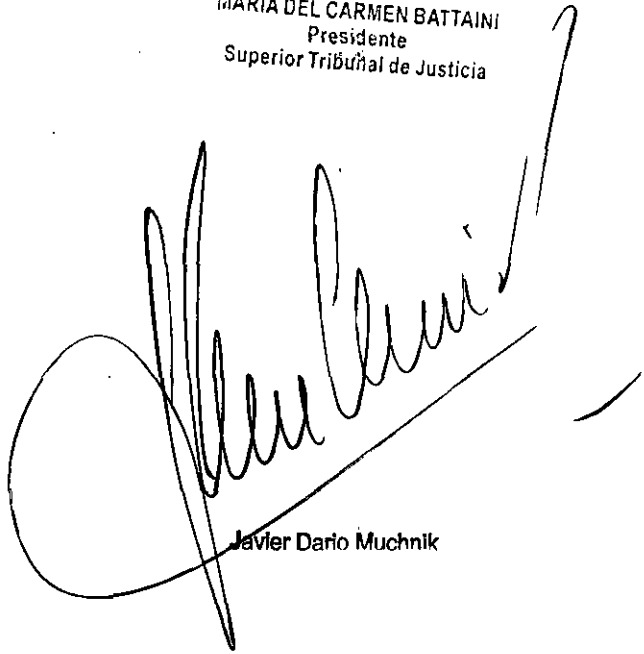 MARIA DEL CARMEN BATTAINI
Presidente
Superior Tribunal de Justicia
Javier Dario Muchnik